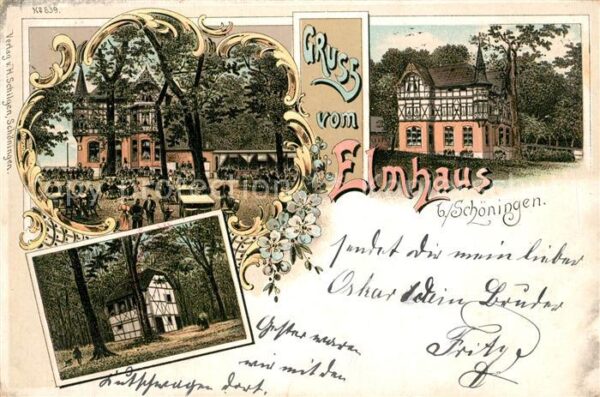 No 839.
Verlag v. H. Schilgen, Schöningen.
GRUSS
vom
Elmhaus
b/Schöningen.
sendet Dir mein lieber
Oskar Dein Bruder
Fritz
Gestern waren
wir mit den
Kutschwagen dort.